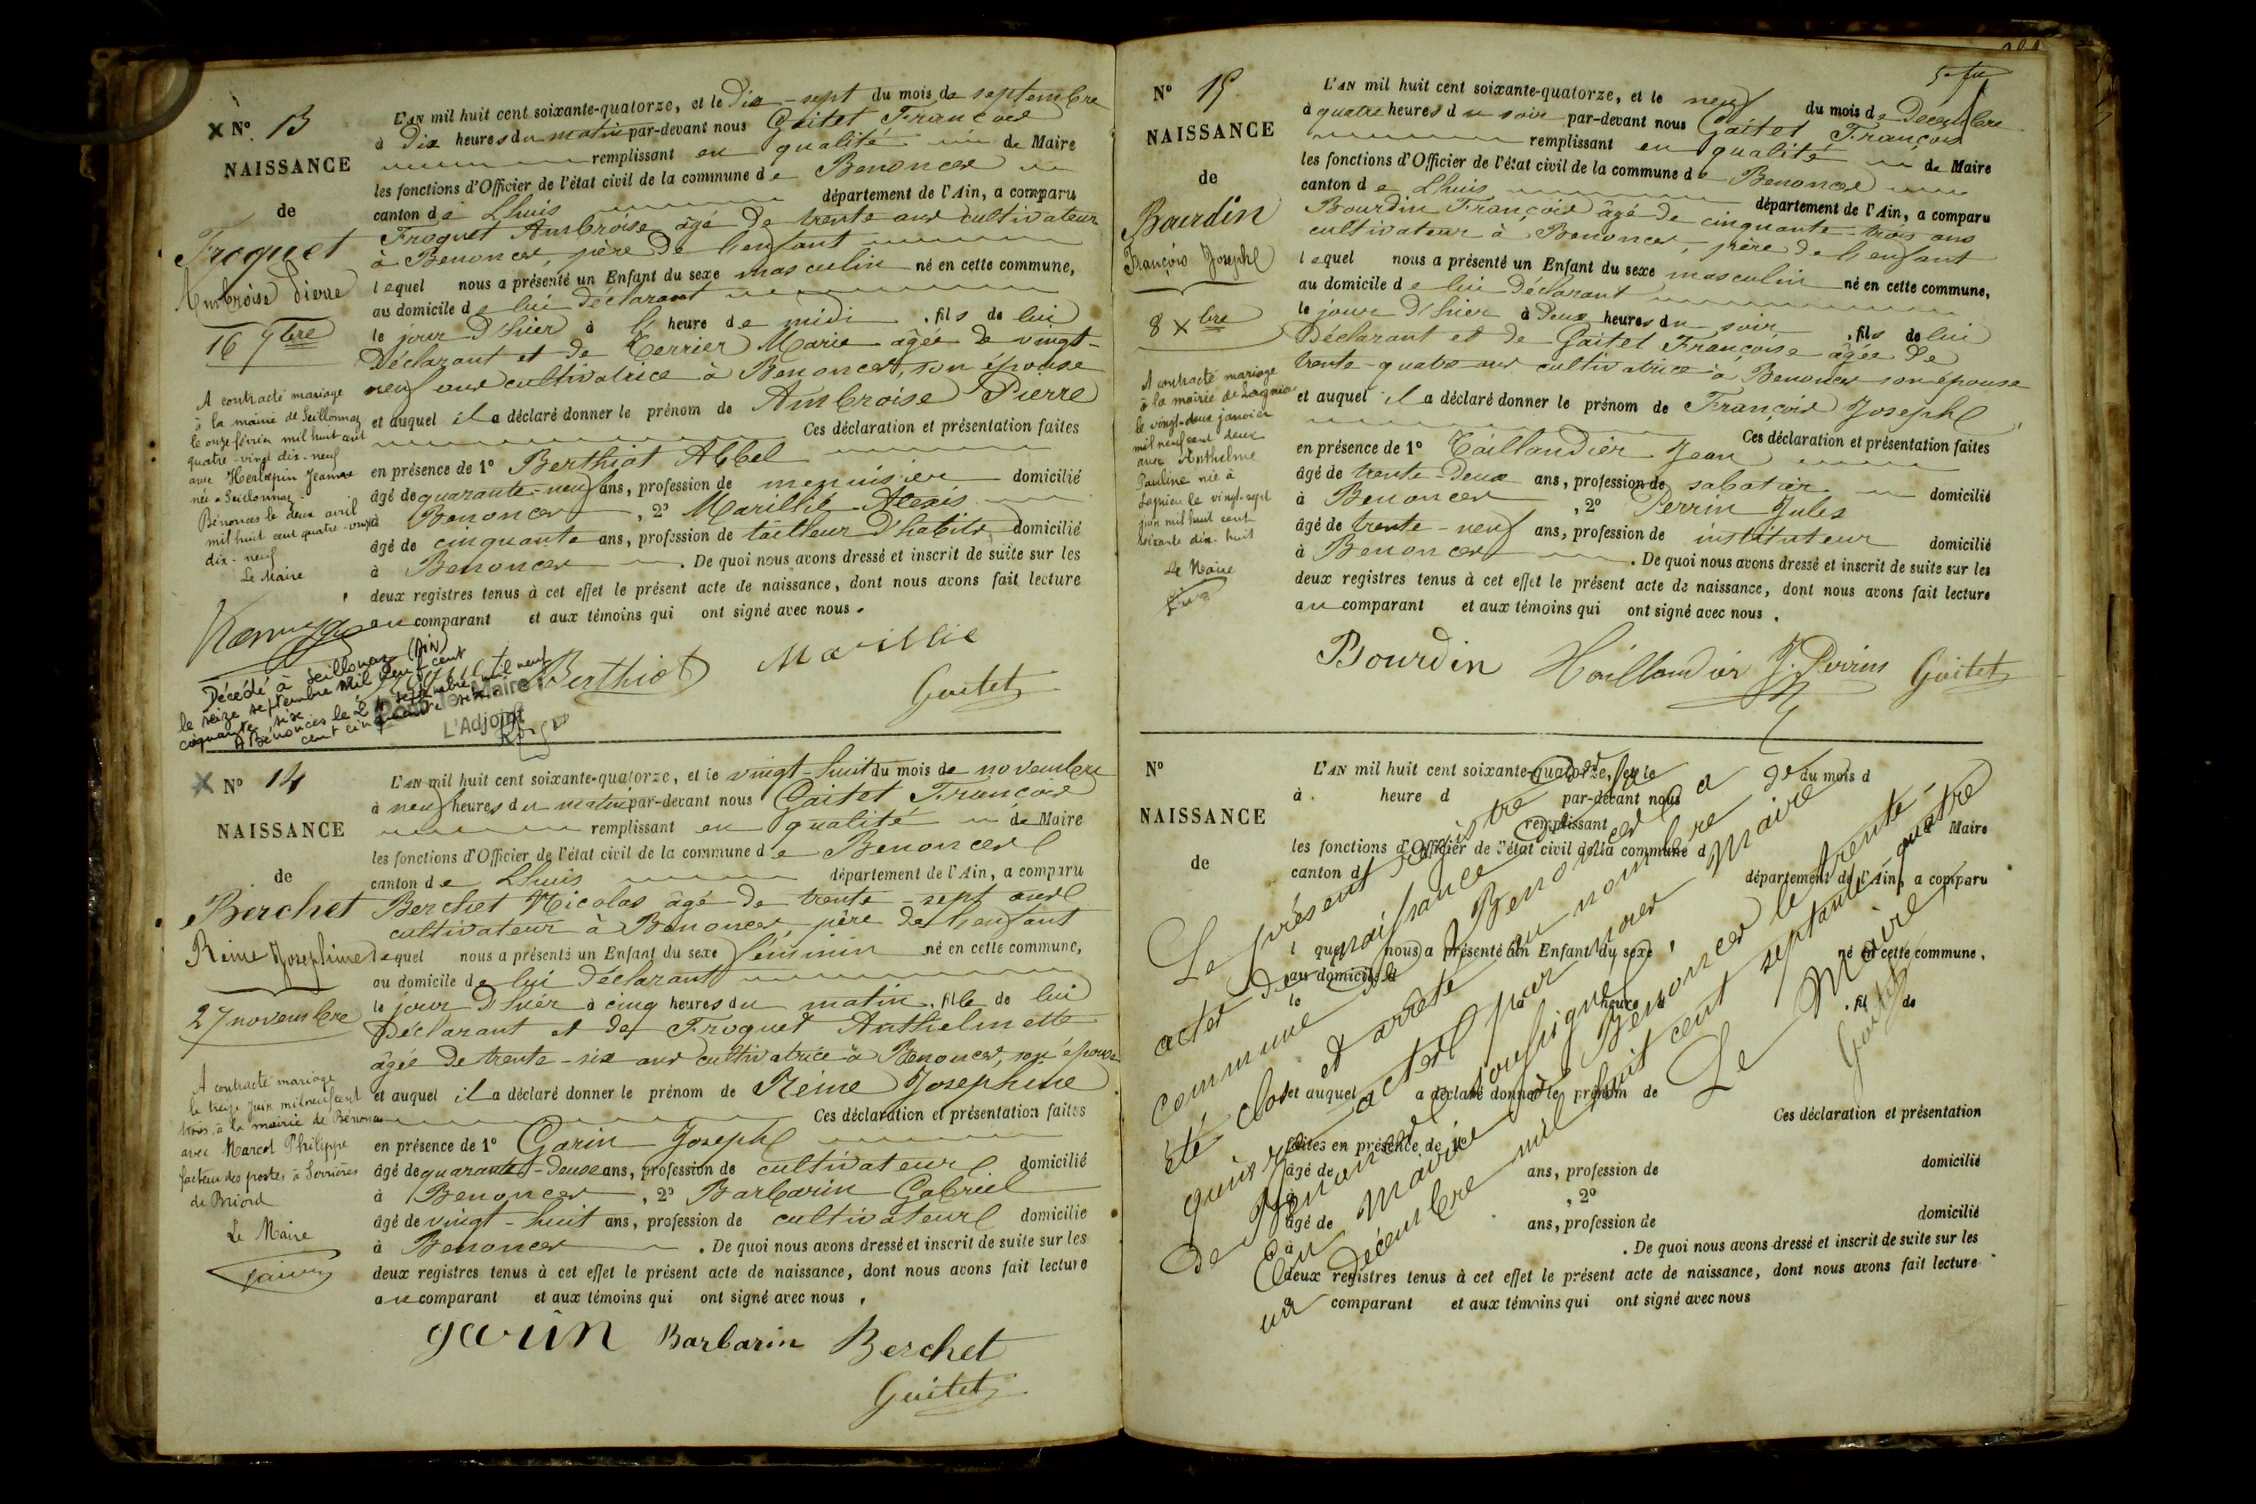 X N° 13
NAISSANCE
de
Froquet
Ambroise Pierre
16 7bre
A contracté mariage
à la mairie de Seillonnaz
le onze février mil huit cent
quatre-vingt dix-neuf
avec Jeanne
née à Seillonnaz
Bénonces le deux avril
mil huit cent quatre-vingt
dix-neuf
Le Maire
L'AN mil huit cent soixante-quatorze, et le Dix-sept du mois de septembre
à Dix heures du matin par-devant nous Gaitet François
remplissant en qualité de Maire
les fonctions d'Officier de l'état civil de la commune de Benonces
canton de Lhuis département de l'Ain, a comparu
Froquet Ambroise âgé de trente ans cultivateur
à Benonces, père de l'enfant
lequel nous a présenté un Enfant du sexe masculin né en cette commune,
au domicile de lui déclarant
le jour d'hier à l' heure de midi, fils de lui
Déclarant et de Terrier Marie âgée de vingt-
neuf ans cultivatrice à Benonces, son épouse
et auquel il a déclaré donner le prénom de Ambroise Pierre
Ces déclaration et présentation faites
en présence de 1° Berthiot Abbel
âgé de quarante-neuf ans, profession de menuisier domicilié
à Benonces, 2° Marillié Alexis
âgé de cinquante ans, profession de tailleur d'habits domicilié
à Benonces. De quoi nous avons dressé et inscrit de suite sur les
deux registres tenus à cet effet le présent acte de naissance, dont nous avons fait lecture
au comparant et aux témoins qui ont signé avec nous.
Berthiot Marillié
Gaitet
Décédé à Seillonaz (Ain)
le seize septembre mil neuf cent
cinquante six
A Bénonces le 24 septembre mil neuf
cent cinquante six
Pour le Maire :
L'Adjoint
X N° 14
NAISSANCE
de
Berchet
Reine Josephine
27 novembre
A contracté mariage
le treize Juin mil neuf cent
trois à la mairie de Bénonces
avec Marcel Philippe
facteur des postes à Serrières
de Briord
Le Maire
L'AN mil huit cent soixante-quatorze, et le vingt-huit du mois de novembre
à neuf heures du matin par-devant nous Gaitet François
remplissant en qualité de Maire
les fonctions d'Officier de l'état civil de la commune de Benonces
canton de Lhuis département de l'Ain, a comparu
Berchet Nicolas âgé de trente-sept ans
cultivateur à Benonces, père de l'enfant
lequel nous a présenté un Enfant du sexe féminin né en cette commune,
au domicile de lui déclarant
le jour d'hier à cinq heures du matin, fille de lui
Déclarant et de Froquet Anthelmette
âgée de trente-six ans cultivatrice à Benonces, son épouse
et auquel il a déclaré donner le prénom de Reine Josephine
Ces déclaration et présentation faites
en présence de 1° Garin Joseph
âgé de quarante-deux ans, profession de cultivateur domicilié
à Benonces, 2° Barbarin Gabriel
âgé de vingt-huit ans, profession de cultivateur domicilié
à Benonces. De quoi nous avons dressé et inscrit de suite sur les
deux registres tenus à cet effet le présent acte de naissance, dont nous avons fait lecture
au comparant et aux témoins qui ont signé avec nous,
garin Barbarin Berchet
Gaitet
N° 15
NAISSANCE
de
Bourdin
François Joseph
8 Xbre
A contracté mariage
à la mairie de
le vingt-deux janvier
mil neuf cent deux
avec Anthelme
Pauline née à
le vingt-sept
juin mil huit cent
soixante dix-huit
Le Maire
L'AN mil huit cent soixante-quatorze, et le neuf du mois de Décembre
à quatre heures du soir par-devant nous Gaitet François
remplissant en qualité de Maire
les fonctions d'Officier de l'état civil de la commune de Benonces
canton de Lhuis département de l'Ain, a comparu
Bourdin François âgé de cinquante-trois ans
cultivateur à Benonces, père de l'enfant
lequel nous a présenté un Enfant du sexe masculin né en cette commune,
au domicile de lui déclarant
le jour d'hier à Deux heures du soir, fils de lui
Déclarant et de Gaitet Françoise âgée de
trente-quatre ans cultivatrice à Benonces son épouse
et auquel il a déclaré donner le prénom de François Joseph
Ces déclaration et présentation faites
en présence de 1° Taillandier Jean
âgé de trente-deux ans, profession de sabotier domicilié
à Benonces, 2° Perrin Jules
âgé de trente-neuf ans, profession de instituteur domicilié
à Benonces. De quoi nous avons dressé et inscrit de suite sur les
deux registres tenus à cet effet le présent acte de naissance, dont nous avons fait lecture
au comparant et aux témoins qui ont signé avec nous.
Bourdin Taillandier J. Perrin Gaitet
N°
NAISSANCE
de
L'AN mil huit cent soixante-quatorze, et le du mois d
à heure d par-devant nous
remplissant Maire
les fonctions d'Officier de l'état civil de la commune d
canton d département de l'Ain, a comparu
l quel nous a présenté un Enfant du sexe né en cette commune,
au domicile d
le à heure d, fil de
et auquel a déclaré donner le prénom de
Ces déclaration et présentation
faites en présence de 1°
âgé de ans, profession de domicilié
à, 2°
âgé de ans, profession de domicilié
à. De quoi nous avons dressé et inscrit de suite sur les
deux registres tenus à cet effet le présent acte de naissance, dont nous avons fait lecture
comparant et aux témoins qui ont signé avec nous
Le présent registre des
actes de naissance de la
commune de Benonces a
été clos et arrêté au nombre de
quinze actes par nous Maire
de Benonces soussigné,
En Mairie à Benonces le trente-
un décembre mil huit cent septante quatre
Le Maire
Gaitet